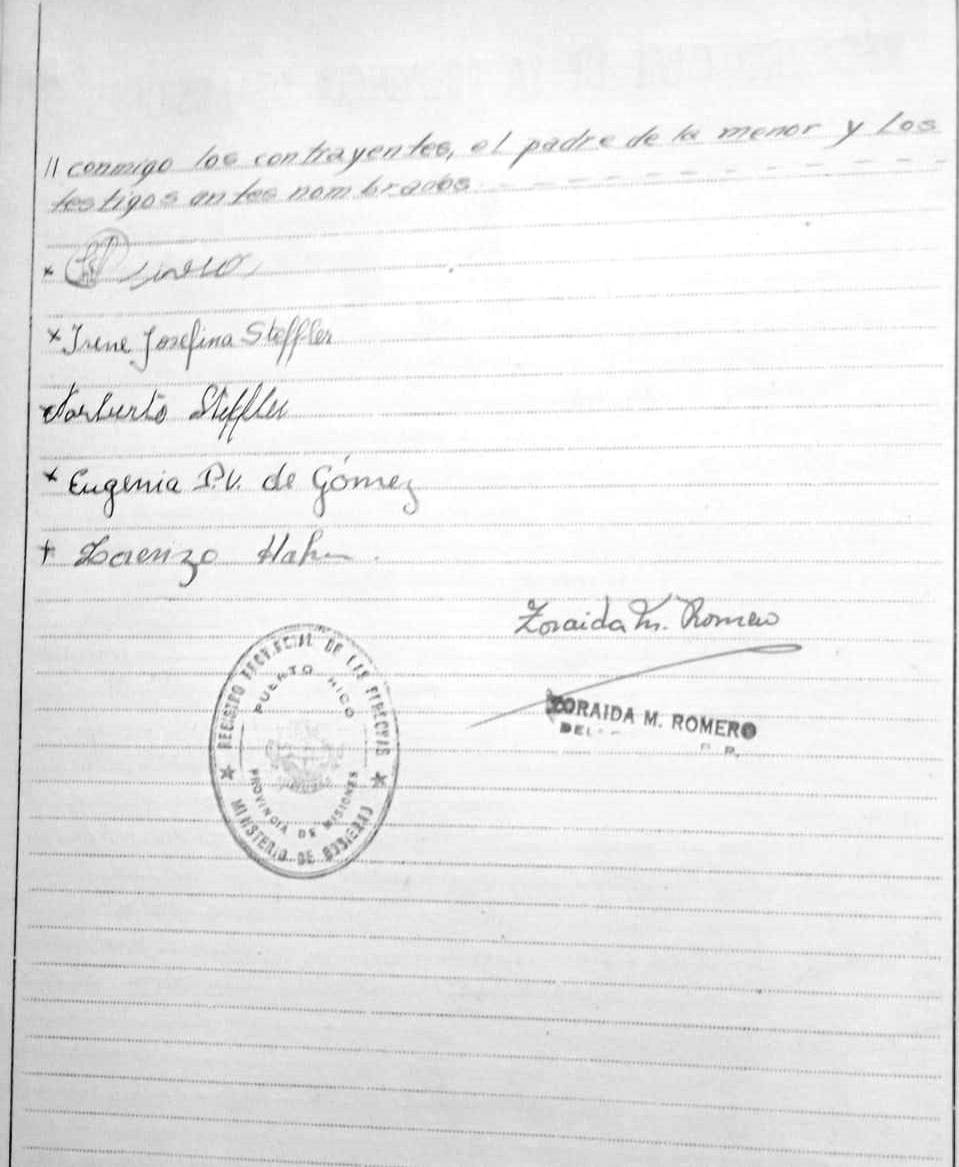 // conmigo los contrayentes, el padre de la menor y los
testigos antes nombrados - - - - - - - - - - - -
x
x Irene Josefina Steffler
x Norberto Steffler
x Eugenia P.V. de Gómez
+ Lorenzo Hahn
Zoraida M. Romero
ZORAIDA M. ROMERO
REGISTRO PROVINCIAL DE LAS PERSONAS
PUERTO RICO
PROVINCIA DE MISIONES
MINISTERIO DE GOBIERNO